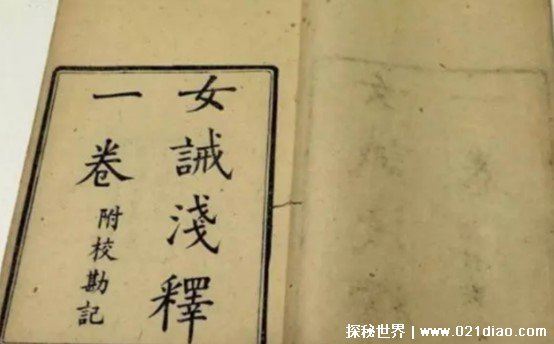 女誡淺釋
一卷附校勘記
探秘世界 | www.021diao.com